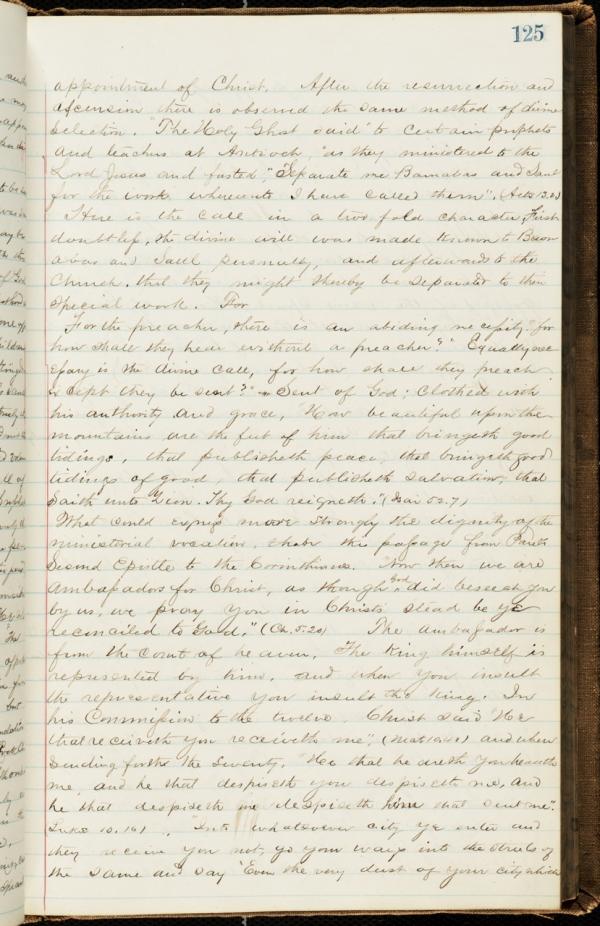 125
appointment of Christ. After the resurrection and
ascension there is observed the same method of divine
selection. "The Holy Ghost said" to certain prophets
and teachers at Antioch, "as they ministered to the
Lord Jesus and fasted," "Separate me Barnabas and Saul
for the work whereunto I have called them". (Acts 13.2)
Here is the call in a two fold character, First
doubtless, the divine will was made known to Barn
abas and Saul personally, and afterward to the
Church, that they might thereby be separated to their
special work. For
For the preacher, there is an abiding necessity. "for
how shall they hear without a preacher?" Equally nec
essary is the divine call, for how shall they preach
except they be sent?" Sent of God; Clothed with
his authority and grace, "How beautiful upon the
mountains are the feet of him that bringeth good
tidings, that publisheth peace, that bringeth good
tidings of good, that publisheth salvation, that
saith unto Zion. Thy God reigneth." (Isai 52.7)
What could express more strongly the dignity of the
ministerial vocation, than this passage from Paul's
Second Epistle to the Corinthians. "Now then we are
Ambassadors for Christ, as though God did beseech you
by us, we pray you in Christ's stead be ye
reconciled to God." (Ch. 5.20) The ambassador is
from the Court of heaven, The King himself is
represented by him, and when you insult
the representative you insult the King. In
his Commission to the twelve, Christ said "He
that receiveth you receiveth me", (Mat 10.40) and when
sending forth the Seventy, "He that heareth you heareth
me, and he that despiseth you despiseth me, and
he that despiseth me despiseth him that sent me".
Luke 10.16), "Into whatsoever city ye enter and
they receive you not, go your ways into the streets of
the same and say "Even the very dust of your city which